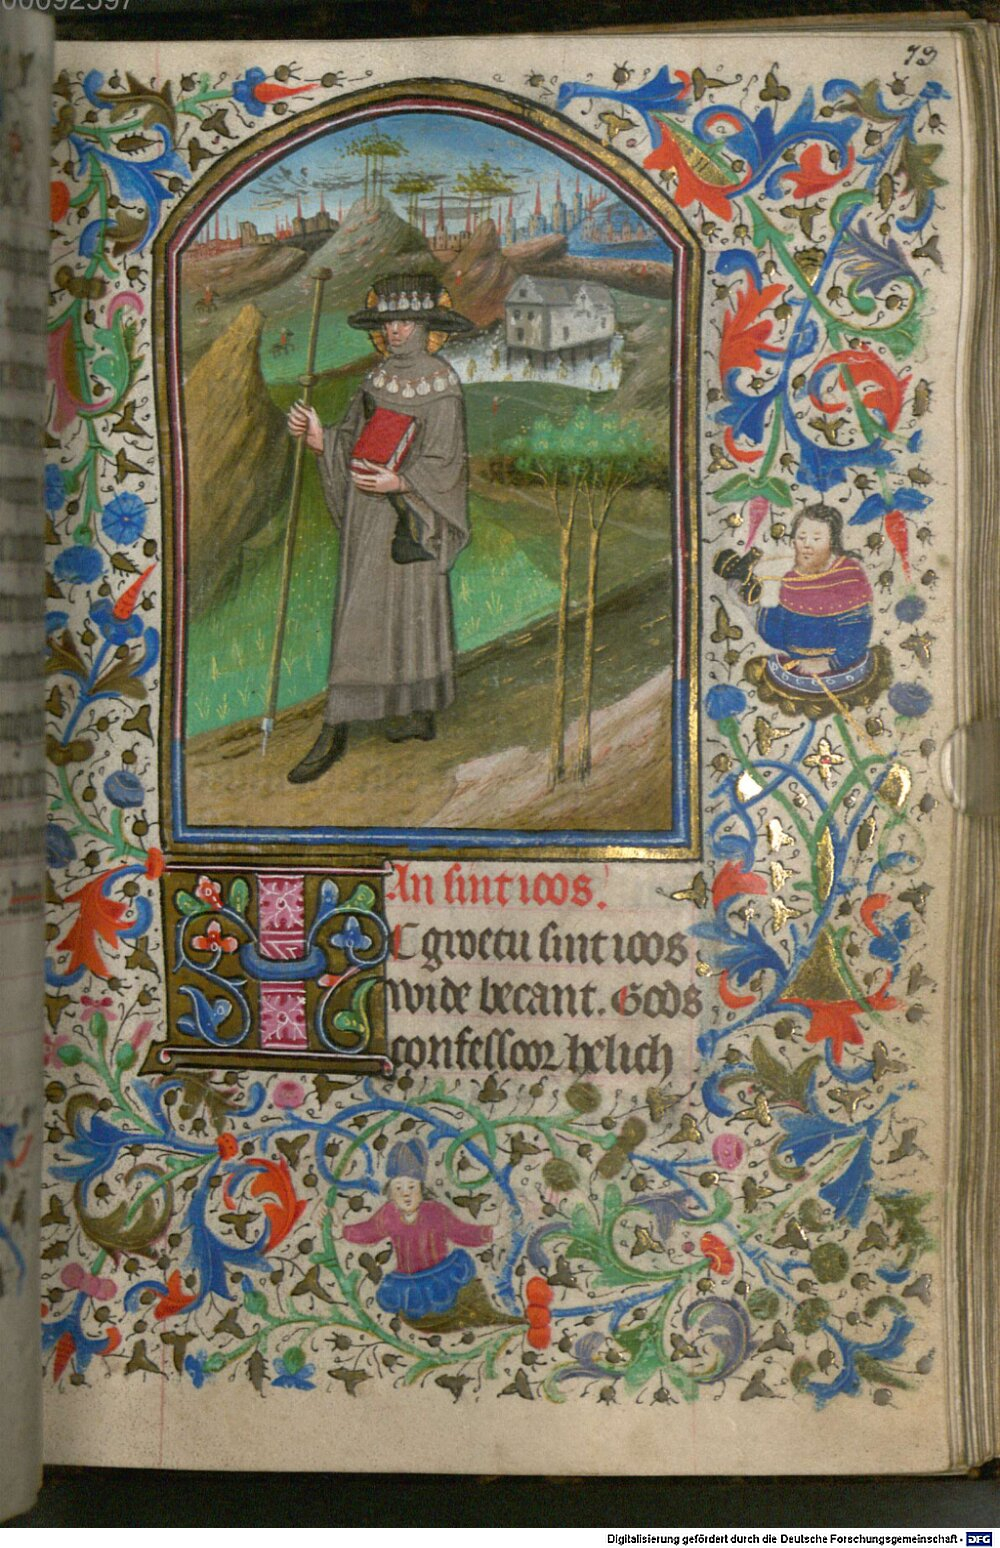 00092597
79
Van sint ioos.
HEt groetu sint ioos
wide becant. Gods
confessoor helich
Digitalisierung gefördert durch die Deutsche Forschungsgemeinschaft - DFG